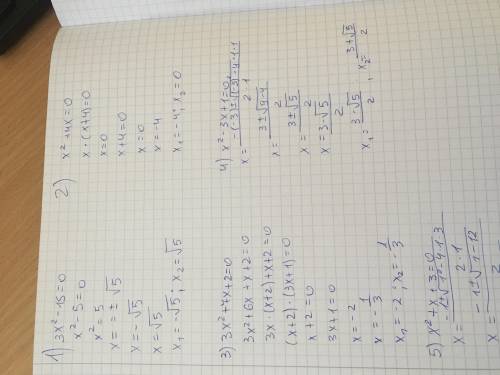 1) 3x²-15=0
x²-5=0
x²=5
x=±√5
x=-√5
x=√5
x₁=-√5, x₂=√5
2)
x²+4x=0
x·(x+4)=0
x=0
x+4=0
x=0
x=-4
x₁=-4; x₂=0
3) 3x²+7x+2=0
3x²+6x+x+2=0
3x·(x+2)+x+2=0
(x+2)·(3x+1)=0
x+2=0
3x+1=0
x=-2
x=-1/3
x₁=-2; x₂=-1/3
4) x²-3x+1=0
x=(-(-3)±√(-3)²-4·1·1)/(2·1)
x=(3±√9-4)/2
x=(3±√5)/2
x=(3-√5)/2
x₁=(3-√5)/2, x₂=(3+√5)/2
5) x²+x+3=0
x=(-1±√1²-4·1·3)/(2·1)
x=(-1±√1-12)/2